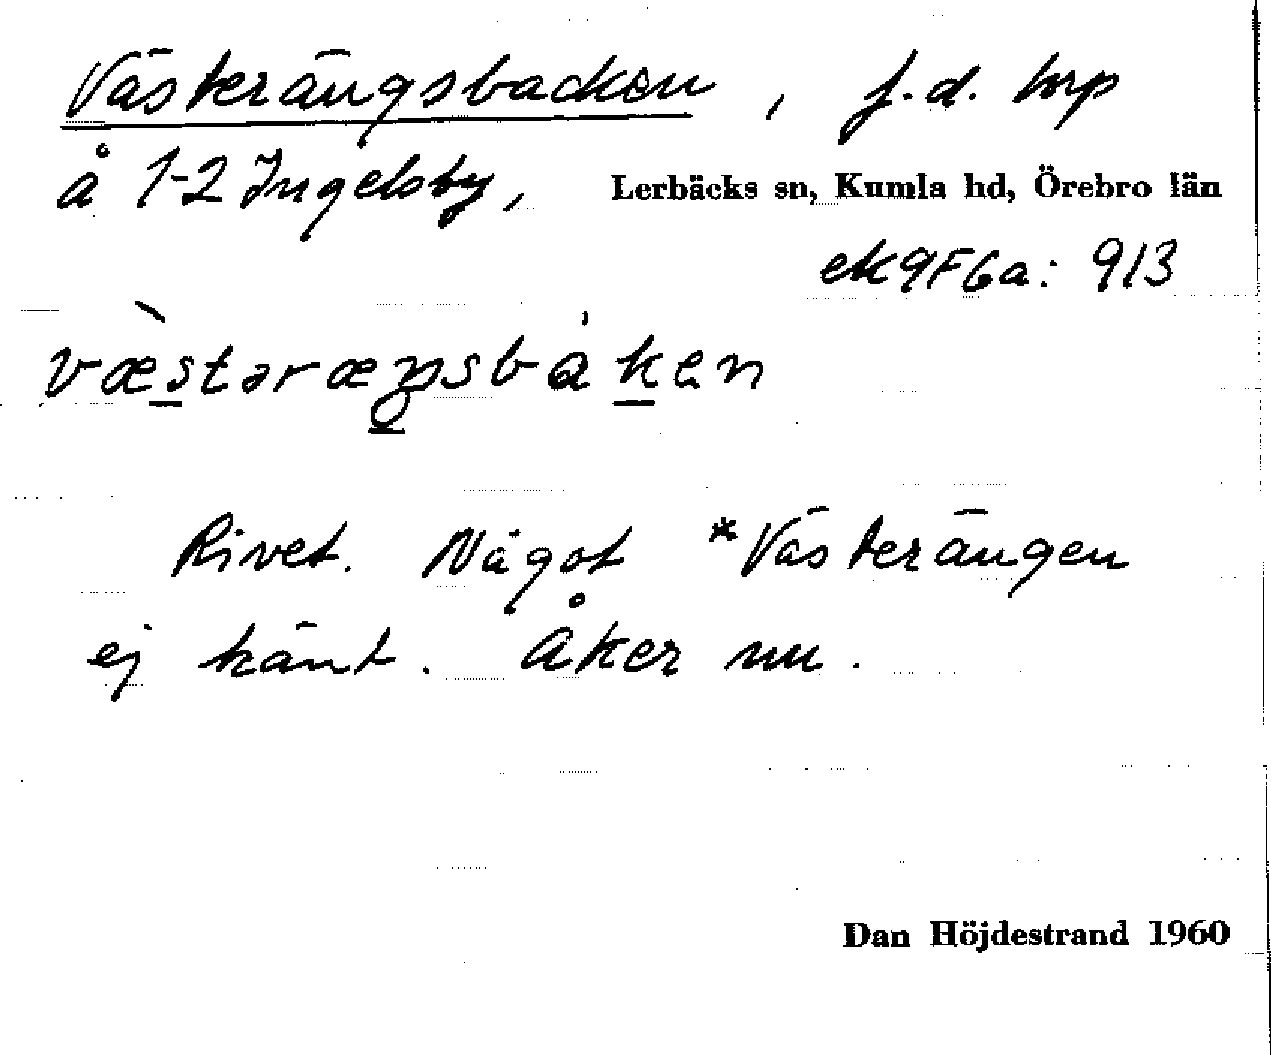 Västerängsbacken, f.d. torp
å 1-2 Ingelsby, Lerbäcks sn, Kumla hd, Örebro län
ek9F6a: 913
væ̀stəræŋsbákən
Rivet. Något *Västerängen
ej känt. Åker nu.
Dan Höjdestrand 1960